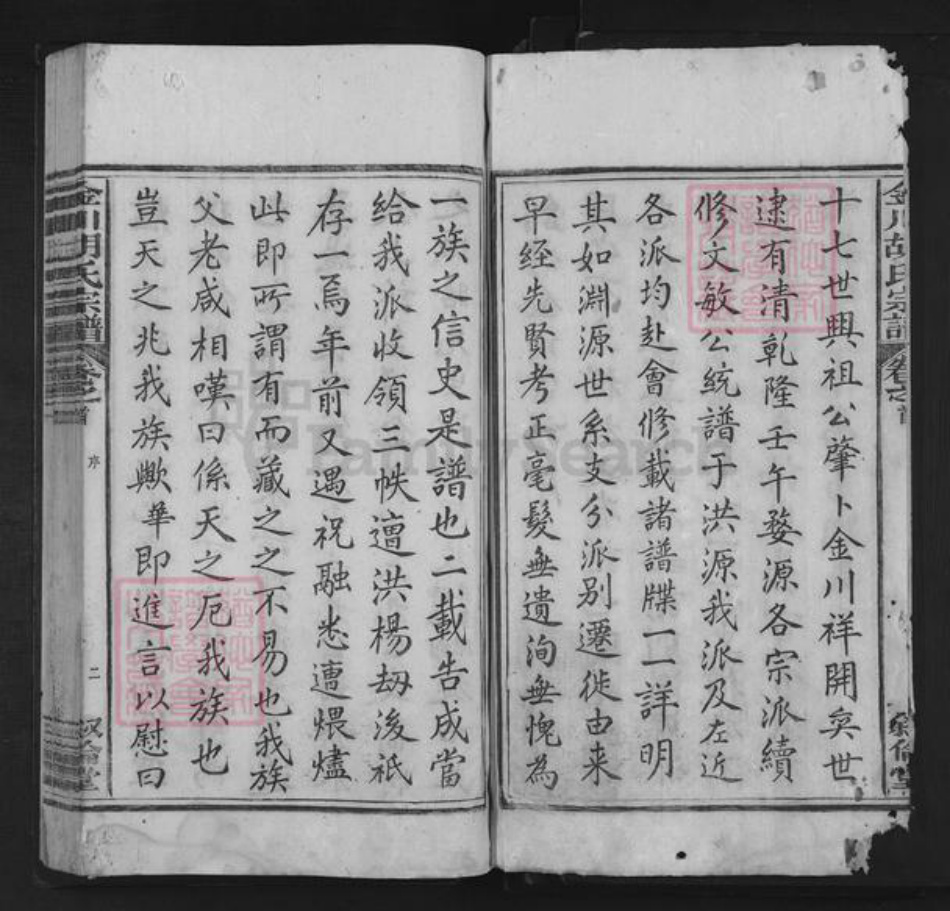 十七世興祖公肇卜金川祥開奕世
逮有清乾隆壬午婺源各宗派續
修文敏公統譜于洪源我派及左近
各派均赴會修載諸譜牒一一詳明
其如淵源世系支分派别遷徙由来
早经先賢考正毫髮無遺洵無愧為
一族之信史是譜也二載告成當
給我派收領三帙遭洪楊刼後祇
存一焉年前又遇祝融悉遭煨燼
此即所謂有而藏之之不易也我族
父老咸相嘆曰係天之厄我族也
豈天之兆我族歟華即進言以慰曰
金川胡氏宗譜
卷之首
序
二
叙倫堂
FamilySearch